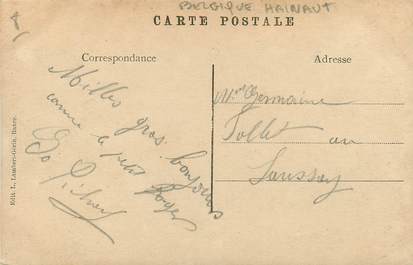 BELGIQUE HAINAUT
CARTE POSTALE
Correspondance
Adresse
Milles gros bonjours
comme le petit
Mme Germaine
Pollet au
Saussoy
Edit. L. Lambert-Gérin, Binche.